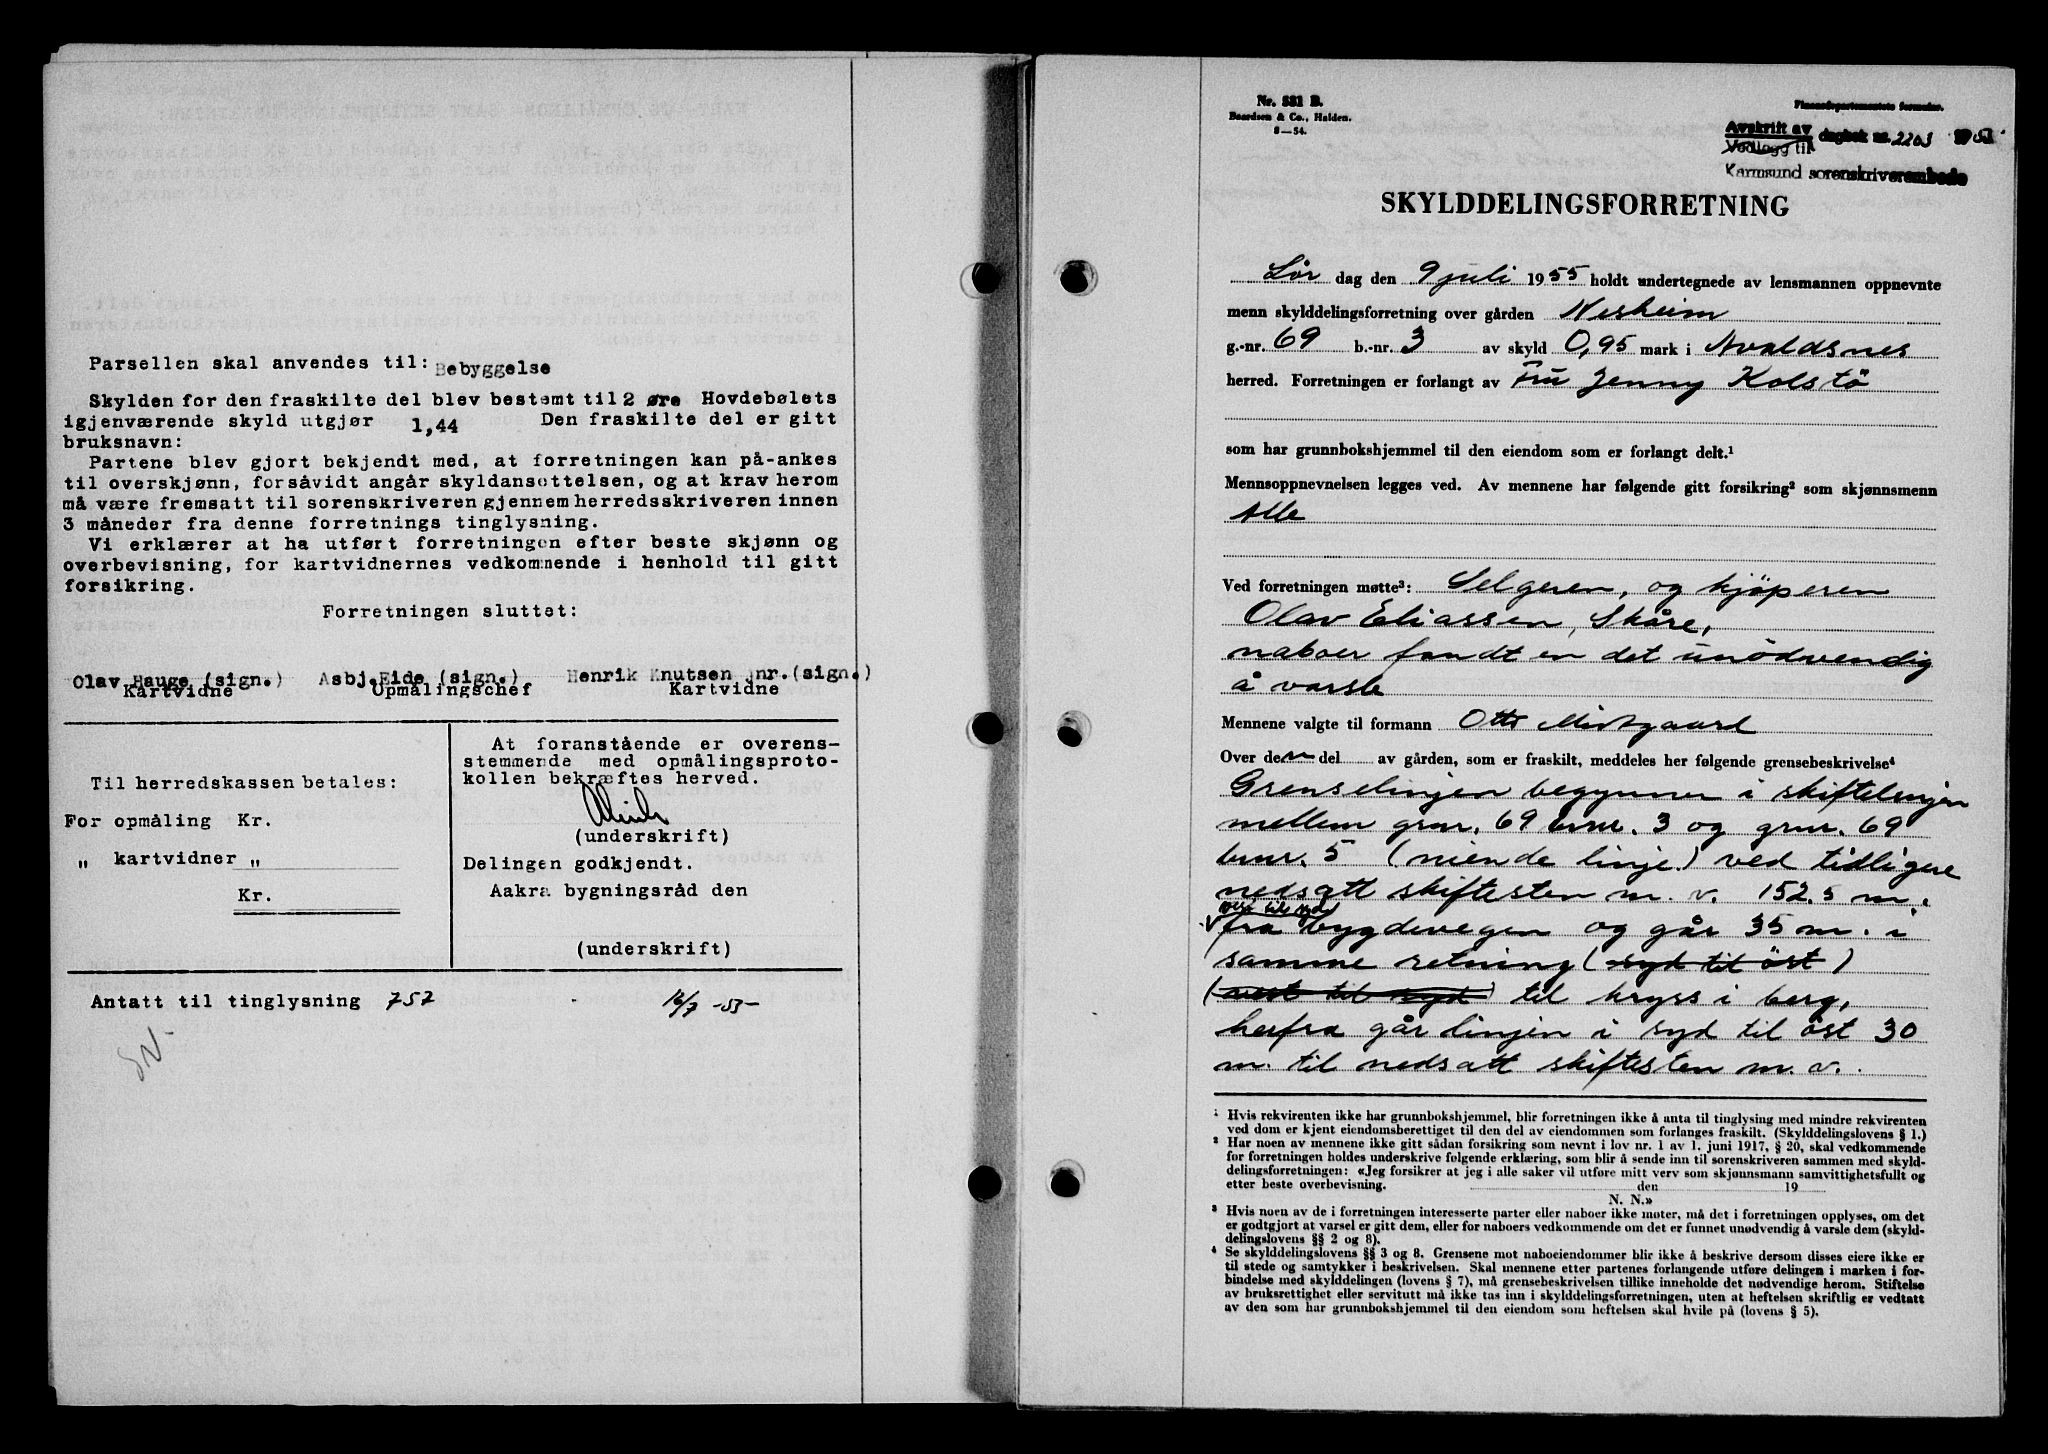 Parsellen skal anvendes til: Bebyggelse
Skylden for den fraskilte del blev bestemt til 2 øre Hovdebølets
igjenværende skyld utgjør 1,44 Den fraskilte del er gitt
bruksnavn:
Partene blev gjort bekjendt med, at forretningen kan på-ankes
til overskjønn, forsåvidt angår skyldansettelsen, og at krav herom
må være fremsatt til sorenskriveren gjennem herredsskriveren innen
3 måneder fra denne forretnings tinglysning.
Vi erklærer at ha utført forretningen efter beste skjønn og
overbevisning, for kartvidnernes vedkommende i henhold til gitt
forsikring.
Forretningen sluttet:
Olav Hauge (sign.) Asbj.Eide (sign.) Henrik Knutsen jnr.(sign.)
Kartvidne Opmålingschef Kartvidne
Til herredskassen betales:
For opmåling Kr.
„ kartvidner „
Kr.
At foranstående er overens-
stemmende med opmålingsproto-
kollen bekræftes herved.
(underskrift)
Delingen godkjendt.
Aakra bygningsråd den
(underskrift)
Antatt til tinglysning 757 16/7 -55-
Nr. 581 B.
Baardsen & Co., Halden.
8—54.
Finansdepartementets formular.
Avskrift av
Vedlegg til dagbok nr. 2203 1955
Karmsund sorenskriverembede
SKYLDDELINGSFORRETNING
Lör dag den 9 juli 1955 holdt undertegnede av lensmannen oppnevnte
menn skylddelingsforretning over gården Nesheim
g.-nr. 69 b.-nr. 3 av skyld 0,95 mark i Avaldsnes
herred. Forretningen er forlangt av Fru Jenny Kolstö
som har grunnbokshjemmel til den eiendom som er forlangt delt.¹
Mennsoppnevnelsen legges ved. Av mennene har følgende gitt forsikring² som skjønnsmenn
Alle
Ved forretningen møtte³: Selgeren, og kjöperen
Olav Eliassen, Skåre,
naboer fandt en det unödvendig
å varsle
Mennene valgte til formann Otto Midtgaard
Over den del av gården, som er fraskilt, meddeles her følgende grensebeskrivelse⁴
Grenselinjen begynner i skiftelinjen
mellem gnr. 69 bnr. 3 og gnr. 69
bnr. 5 (niende linje) ved tidligere
nedsatt skiftesten m. v. 152,5 m.
vest til syd
fra bygdevegen og går 35 m. i
samme retning (syd til öst)
(vest til syd) til kryss i berg,
herfra går linjen i syd til öst 30
m. til nedsatt skiftesten m. v.
¹ Hvis rekvirenten ikke har grunnbokshjemmel, blir forretningen ikke å anta til tinglysing med mindre rekvirenten
ved dom er kjent eiendomsberettiget til den del av eiendommen som forlanges fraskilt. (Skylddelingslovens § 1.)
² Har noen av mennene ikke gitt sådan forsikring som nevnt i lov nr. 1 av 1. juni 1917, § 20, skal vedkommende
før forretningen holdes underskrive følgende erklæring, som blir å sende inn til sorenskriveren sammen med skyld-
delingsforretningen: «Jeg forsikrer at jeg i alle saker vil utføre mitt verv som skjønnsmann samvittighetsfullt og
etter beste overbevisning. den 19
N. N.»
³ Hvis noen av de i forretningen interesserte parter eller naboer ikke møter, må det i forretningen opplyses, om det
er godtgjort at varsel er gitt dem, eller for naboers vedkommende om det er funnet unødvendig å varsle dem (skyld-
delingslovens §§ 2 og 8).
⁴ Se skylddelingslovens §§ 3 og 8. Grensene mot naboeiendommer blir ikke å beskrive dersom disses eiere ikke er
til stede og samtykker i beskrivelsen. Skal mennene etter partenes forlangende utføre delingen i marken i for-
bindelse med skylddelingen (lovens § 7), må grensebeskrivelsen tillike inneholde det nødvendige herom. Stiftelse
av bruksrettighet eller servitutt må ikke tas inn i skylddelingsforretningen, uten at heftelsen skriftlig er vedtatt
av den som har grunnbokshjemmel til den eiendom som heftelsen skal hvile på (lovens § 5).